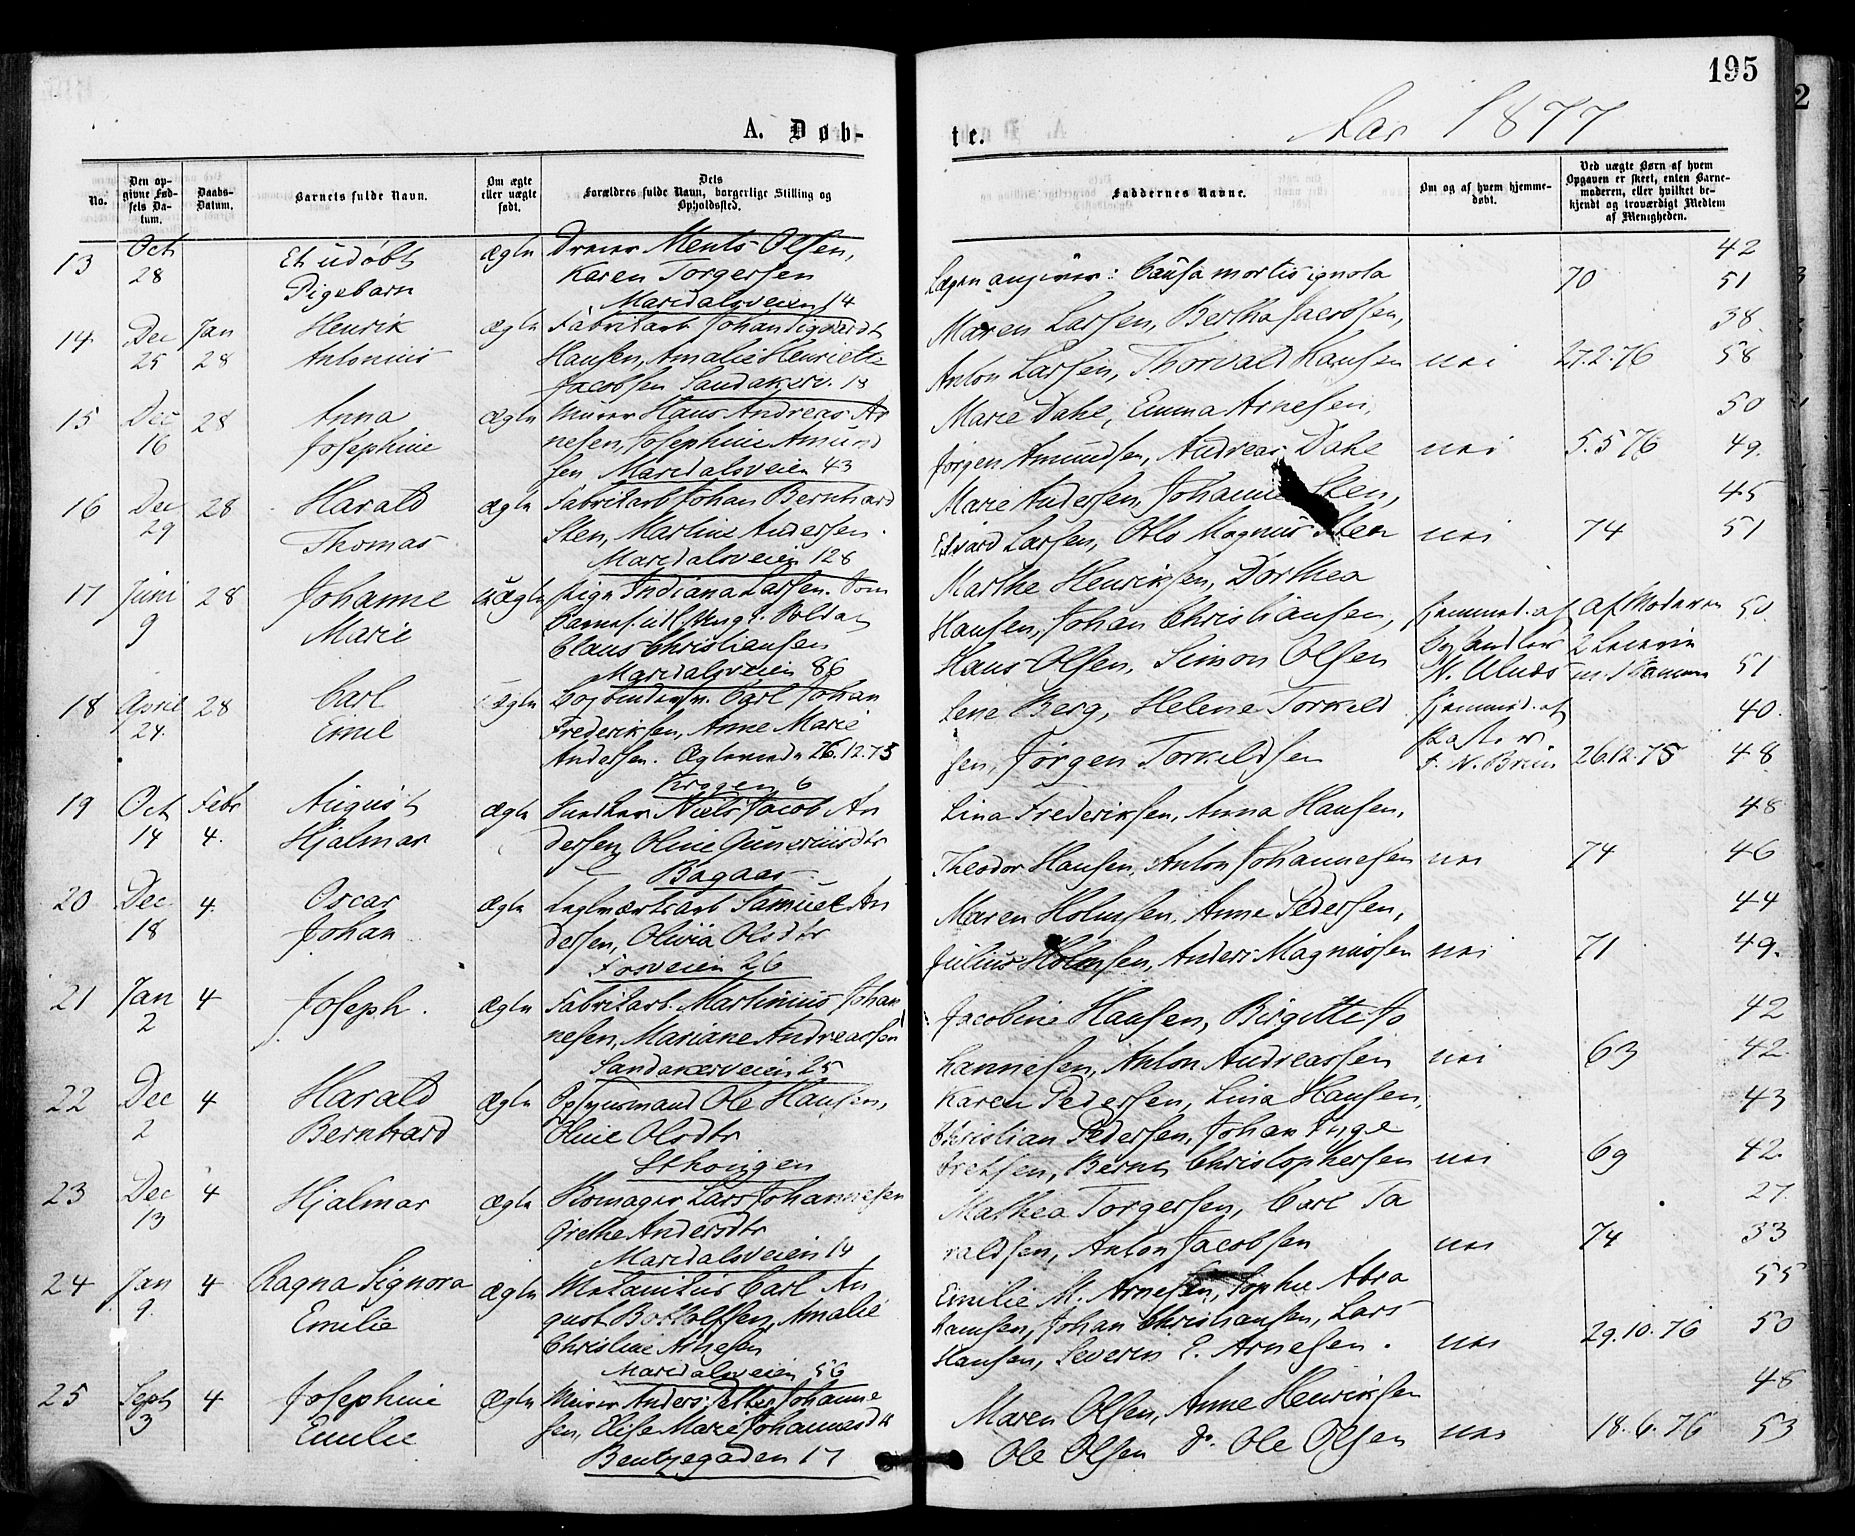 195
Aar 1877
A. Døb-
te.
No.
Den opgivne Fødsels Datum.
Daabs-Datum.
Barnets fulde Navn.
Om ægte eller uægte født.
Dets Forældres fulde Navn, borgerlige Stilling og Opholdssted.
Faddernes Navne.
Om og af hvem hjemmedøbt.
Ved uægte Børn af hvem Opgaven er skeet, enten Barnemoderen, eller hvilket bekjendt og troværdigt Medlem af Menigheden.
13 Oct 28 Et udøbt Pigebarn ægte
Ments Olsen,
Karen Torgersen
Maridalsveien 14
Lægen angiver: Causa mortis ignota 70 42 51
14 Dec 25 Jan 28 Henrik Antonius ægte
Fabrikarb Johan Sigvardt
Hansen, Amalie Henriette
Jacobsen Sandakerv. 18
Maren Larsen, Bertha Jacobsen,
Anton Larsen, Thorvald Hansen nei 27.2.76 38 58
15 Dec 16 28 Anna Josephine ægte
Murer Hans Andreas Ar
nesen, Josephine Amund
sen Maridalsveien 43
Marie Dahl, Emma Arnesen,
Jørgen Amundsen, Andreas Dahl nei 5.5 76 50 49.
16 Dec 29 28 Harald Thomas ægte
Fabrikarb Johan Bernhard
Sten, Martine Andersen.
Maridalsveien 128
Marie Andersen, Johanne Sten,
Edvard Larsen, Otto Magnus Sten nei 74 45 51
17 Juni 9 28 Johanne Marie uægte
Pige Indiana Larsen. Som
Barnef. Soldat
Claus Christiansen
Maridalsveien 86
Marthe Henriksen, Dorthea
Hansen, Johan Christiansen,
Hans Olsen, Simon Olsen
hjemmed. af af Moderen 50. 51
18 April 24. 28 Carl Emil
Bogbindersv. Carl Johan
Frederiksen, Anne Marie
Andersen. Ægteviede 26.12.75
Krogen 6
Lene Berg, Helene Torkeld
sen, Jørgen Torkeldsen
hjemmed. af Pastor J. N. Brun 26.12.75 40. 48
19 Oct 14 Febr 4. August Hjalmar ægte
Niels Jacob An
dersen, Oline Guneriusdtr
Bagaas.
Lina Frederiksen, Anna Hansen,
Theodor Hansen, Anton Johannesen nei 74 48 46
20 Dec 18 4. Oscar Johan ægte
Teglværksarb Samuel An
dersen, Olivia Olsdtr
Fosveien 26
Maren Holmsen, Anne Pedersen,
Julius Holmsen, Anders Magnussen nei 71 44 49.
21 Jan 2 4 Joseph. ægte
Fabrikarb. Martinius Johan
nesen, Mariane Andreassen
Sandakerveien 25
Jacobine Hansen, Birgitte Jo
hannesen, Anton Andreassen nei 63 42 42.
22 Dec 2 4 Harald Bernhard ægte
Opsynsmand Ole Hansen,
Oline Olsdtr
Sthougen
Karen Pedersen, Lina Hansen,
Christian Pedersen, Johan Inge
bretsen, Bernt Christophersen nei 69 43 42.
23 Dec 13 4 Hjalmar ægte
Skomager Lars Johannesen
Grethe Andersdtr
Maridalsveien 14
Mathea Torgersen, Carl Ta
raldsen, Anton Jacobsen nei 74 27. 33
24 Jan 9. 4 Ragna Signora Emilie ægte
Carl Au
gust Botholfsen, Amalie
Christine Arnesen
Maridalsveien 56
Emilie M. Arnesen, Sophie Abra
hamsen, Johan Christiansen, Lars
Hansen, Severin E. Arnesen. nei 29.10.76 55 50
25 Sept 3 4 Josephine Emilie ægte
Murer Anders Petter Johanne
sen, Elise Marie Johannesdtr
Bentzegaden 17
Maren Olsen, Anne Henriksen
Ole Olsen Do. Ole Olsen nei 18.6.76 48 53